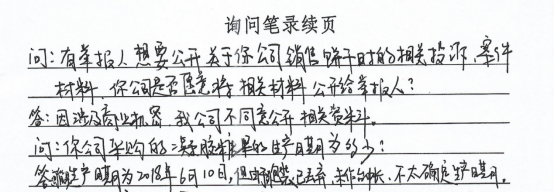 询问笔录续页
问:有举报人想要公开关于你公司销售饼干时的相关投诉、案件
材料,你公司是否愿意将相关材料公开给举报人?
答:因涉及商业机密,我公司不同意公开相关资料。
问:你公司采购的凝胶糖果的生产日期为多少?
答:生产日期为2018年6月10日,但包装已丢弃,不太确定生产日期。